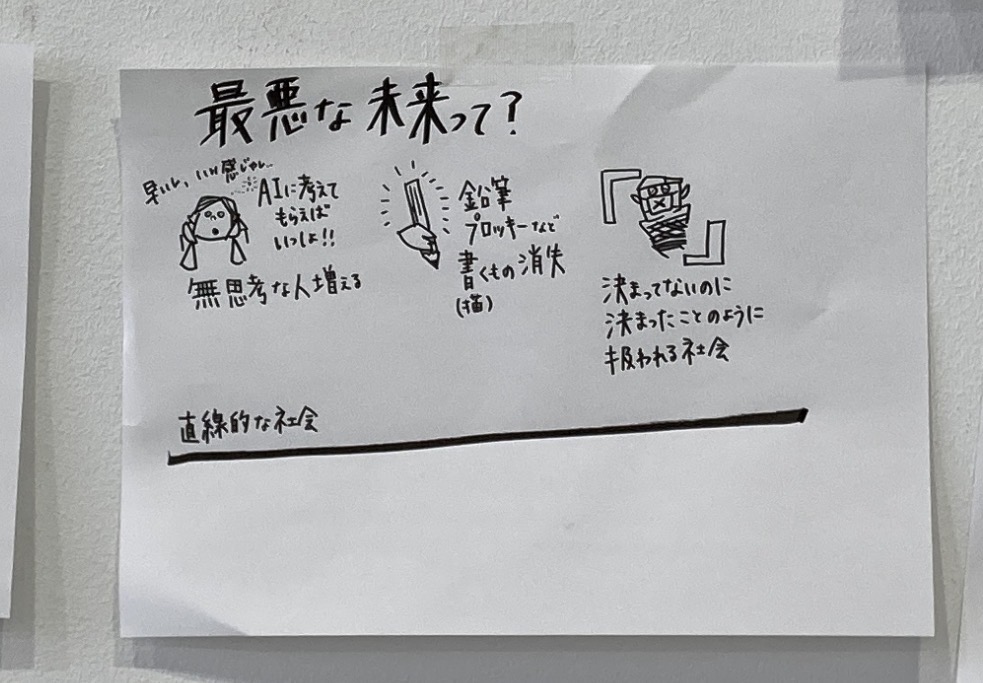 最悪な未来って？
早いし、いい感じやし…
AIに考えて
もらえば
いっしょ!!
無思考な人増える
鉛筆
プロッキーなど
書くもの消失
(描)
決まってないのに
決まったことのように
扱われる社会
直線的な社会